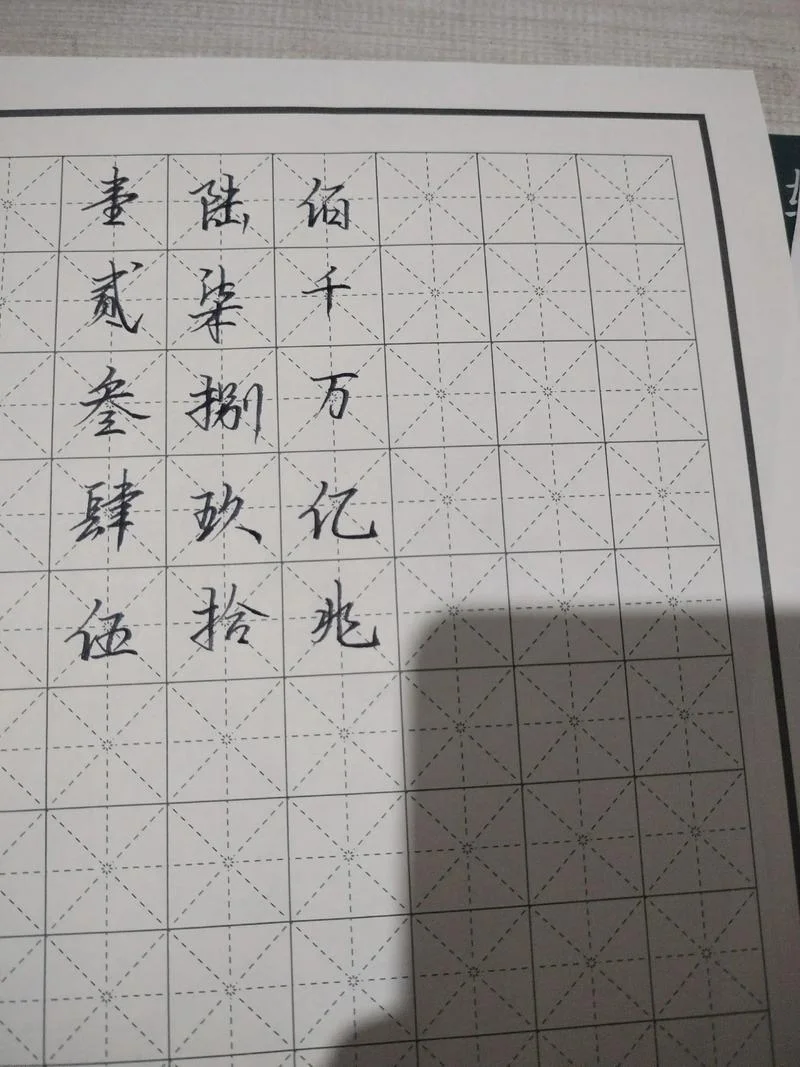 壹贰叁肆伍
陆柒捌玖拾
佰千万亿兆